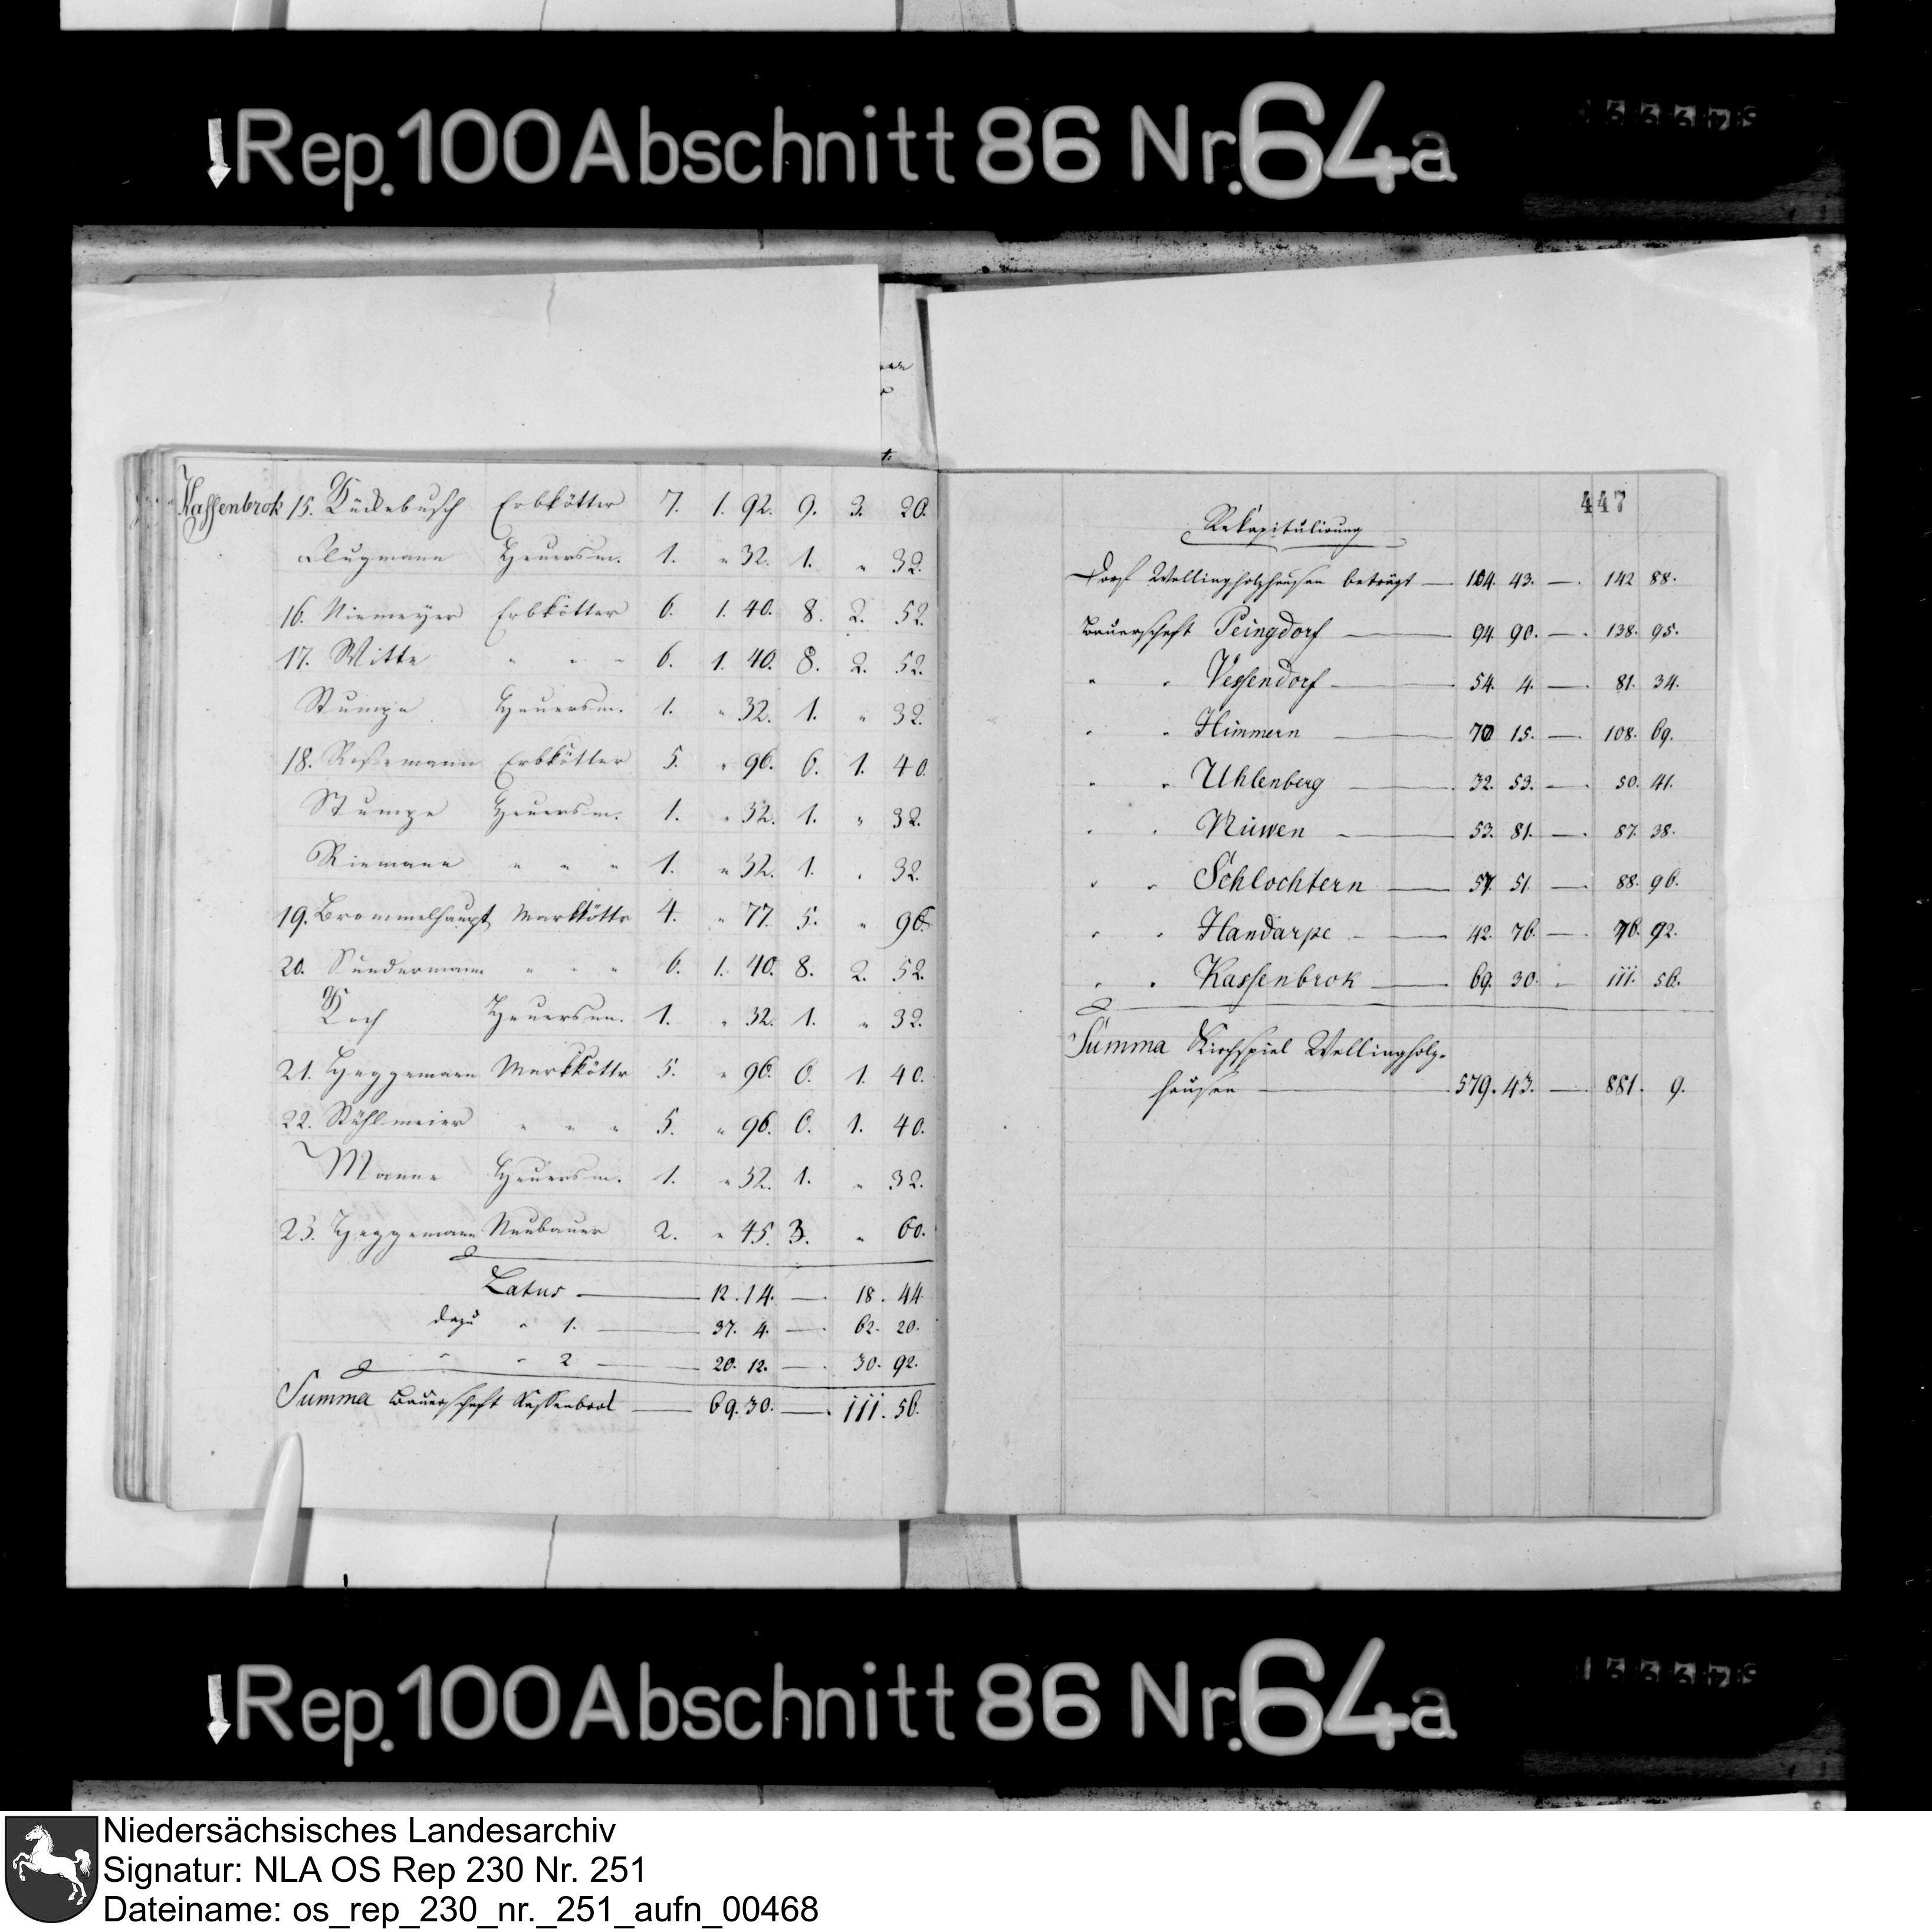 Rep. 100 Abschnitt 86 Nr. 64a
Kassenbrok 15. Kückebusch Erbkötter 7. 1. 92. 9. 3. 20.
Heuersm. 1. " 32. 1. " 32.
16. Niemeyer Erbkötter 6. 1. 40. 8. 2. 52.
17. Witte " " " 6. 1. 40. 8. 2. 52.
Stumpe Heuersm. 1. " 32. 1. " 32.
18. Erbkötter 5. " 96. 6. 1. 40.
Stumpe Heuersm. 1. " 32. 1. " 32.
Niemann " " " 1. " 32. 1. " 32.
19. Brommelhaupt Markkött 4. " 77. 5. " 96.
20. Sundermann " " " 6. 1. 40. 8. 2. 52.
Koch Heuersm. 1. " 32. 1. " 32.
21. Heggemann Markkött 5. " 96. 6. 1. 40.
22. Stühlmeier " " " 5. " 96. 6. 1. 40.
Manne Heuersm. 1. " 32. 1. " 32.
23. Heggemann Neubauer 2. " 45. 3. " 60.
Latus — 12. 14. — 18. 44.
dazu " 1. — 37. 4. — 62. 20.
" " 2 — 20. 12. — 30. 92.
Summa Bauerschaft Kassenbrok — 69. 30. — 111. 56.
447
Rekapitulirung
Dorf Wellingholzhausen beträgt — 104. 43. — 142 88.
Bauerschaft Peingdorf — 94. 90. — 138. 95.
" " Vessendorf — 54. 4. — 81. 34.
" " Himmern — 70 15. — 108. 69.
" " Uhlenberg — 32. 53. — 50. 41.
" " Nüwen — 53. 81. — 87. 38.
" " Schlochtern — 57. 51. — 88. 96.
" " Handarpe — 42. 76. — 76. 92.
" " Kassenbrok — 69. 30. — 111. 56.
Summa Kirchspiel Wellingholz-
hausen — 579. 43. — 881. 9.
Rep. 100 Abschnitt 86 Nr. 64a
Niedersächsisches Landesarchiv
Signatur: NLA OS Rep 230 Nr. 251
Dateiname: os_rep_230_nr._251_aufn_00468